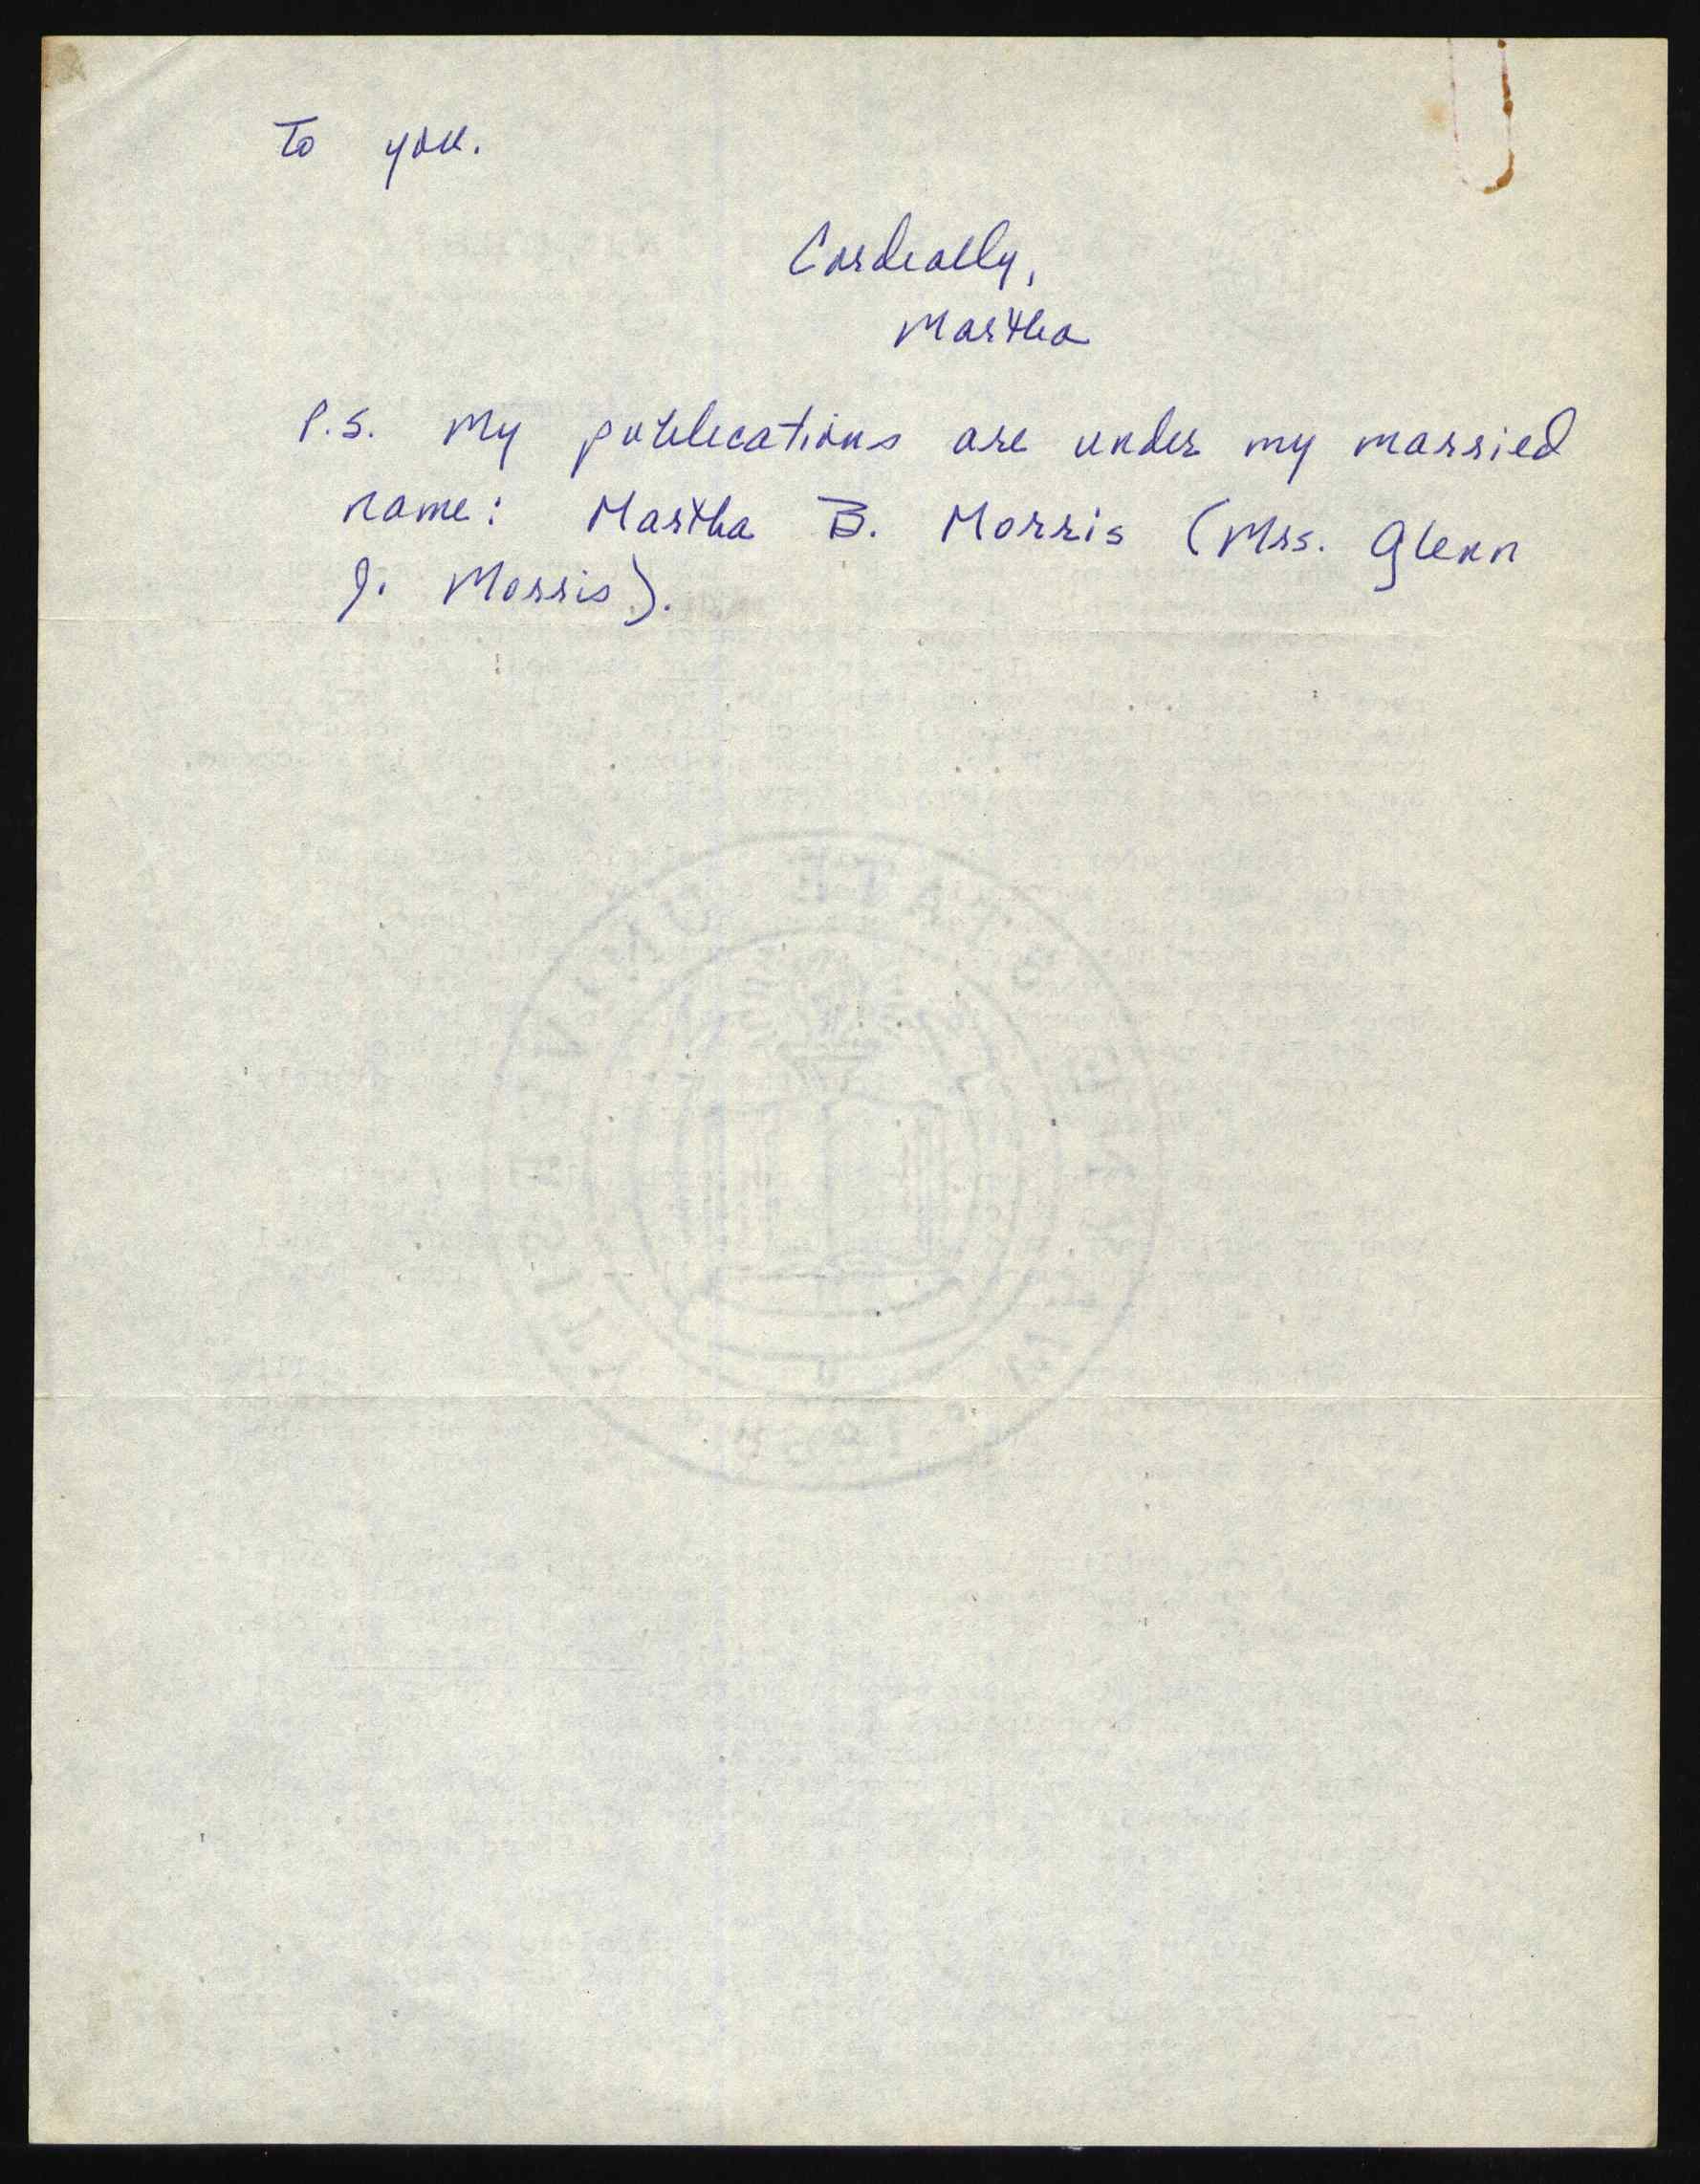 to you.
Cordially,
Martha
P.S. My publications are under my married
name: Martha B. Morris (Mrs. Glenn
J. Morris).